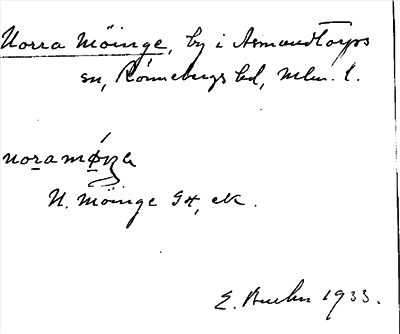 Norra Möinge, by i Asmundtorps
sn, Rönnebergs hd, Mlm. l.
noramǿŋə
N. Möinge Gk, ek.
E. Ewehr 1933.